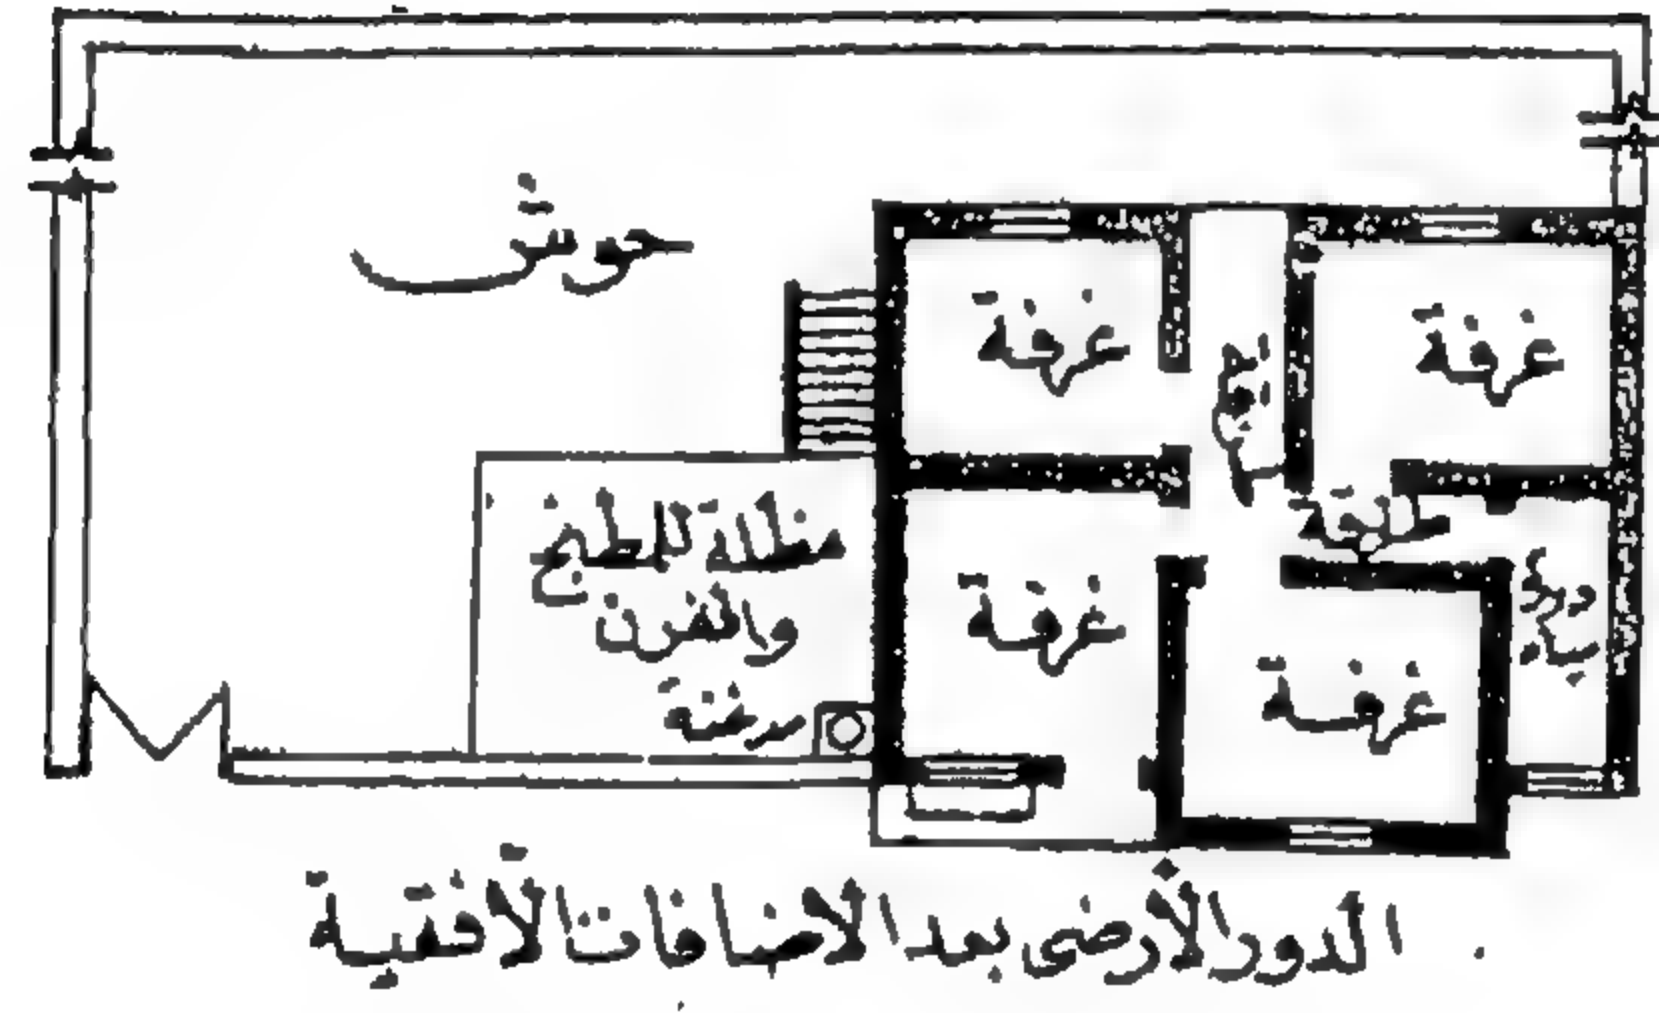 حوش
غرفة
غرفة
طرقة
مظلة للطبخ
والفرن
مدخنة
غرفة
غرفة
دورة
مياه
الدور الأرضى بعد الاضافات الأفقية